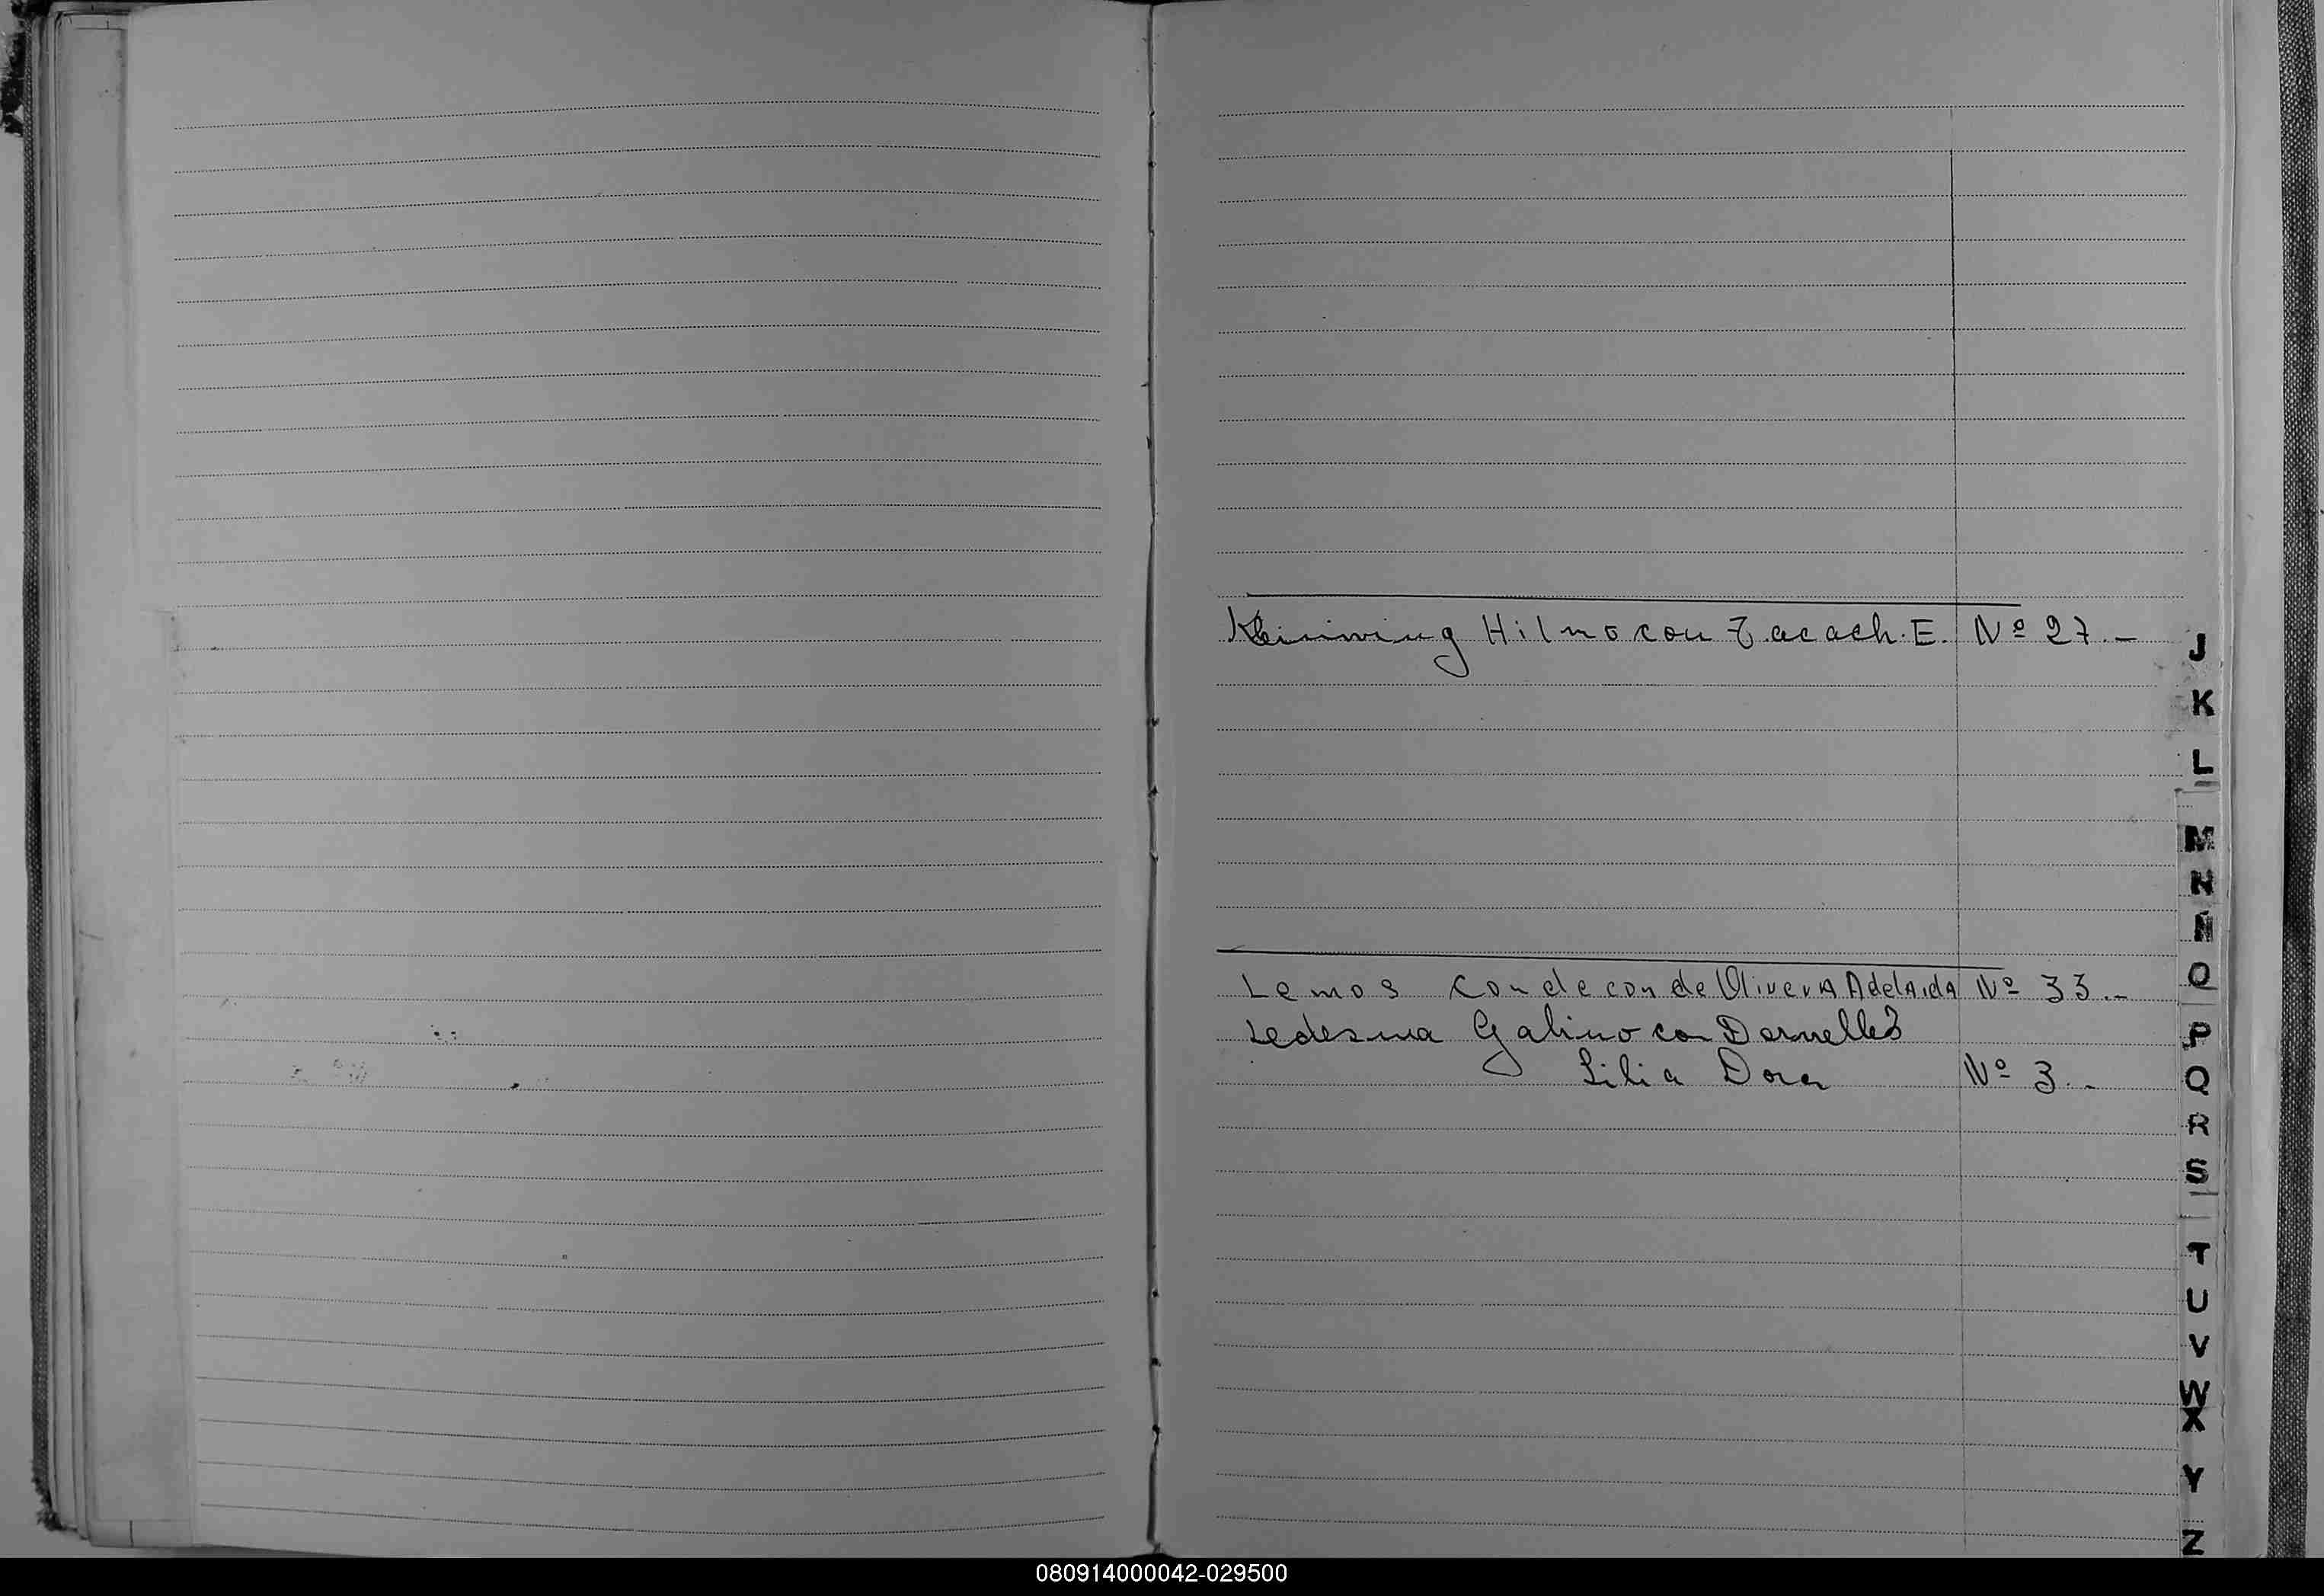 Hilmo con Zacach. E. Nº 27.-
J
K
L
M
N
Ñ
O
Lemos Conde con de Olivera Adelaida Nº 33.-
Ledesma Galino con Dornelles
P
Lilia Dora Nº 3.-
Q
R
S
T
U
V
W
X
Y
Z
080914000042-029500